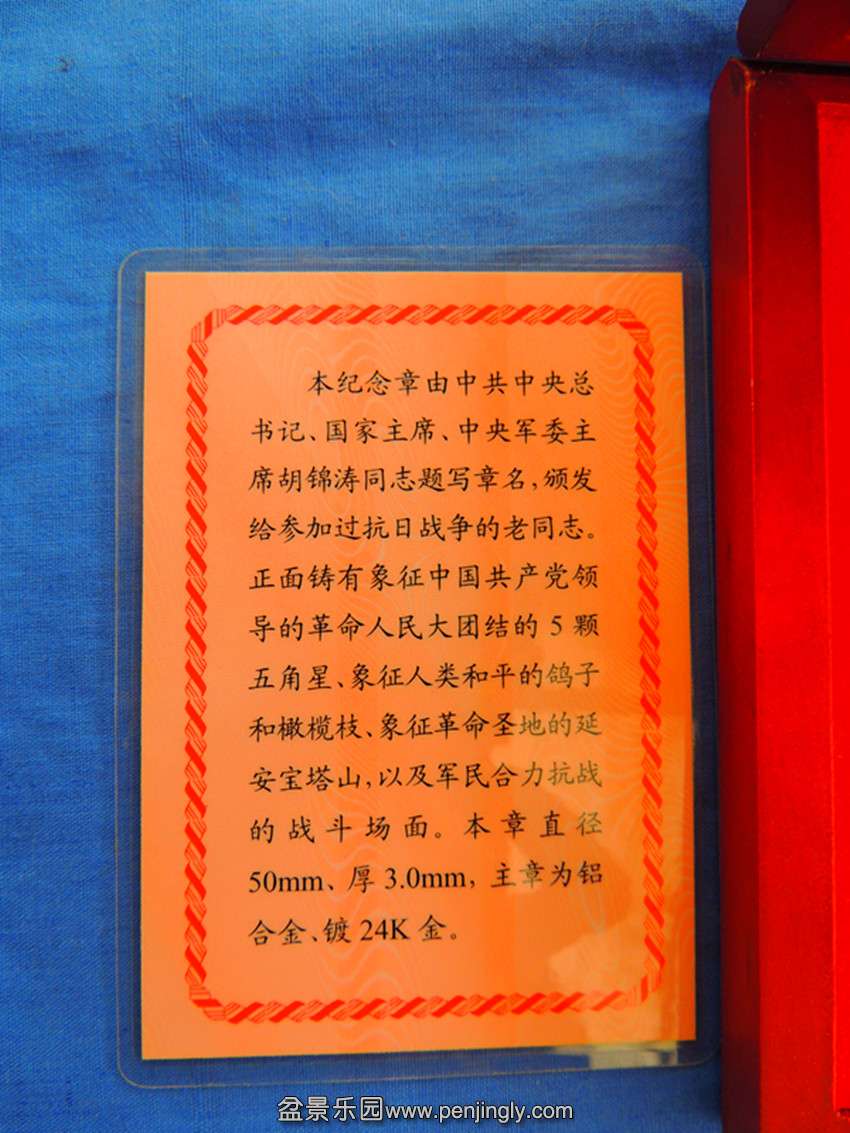 本纪念章由中共中央总
书记、国家主席、中央军委主
席胡锦涛同志题写章名,颁发
给参加过抗日战争的老同志。
正面铸有象征中国共产党领
导的革命人民大团结的5颗
五角星、象征人类和平的鸽子
和橄榄枝、象征革命圣地的延
安宝塔山,以及军民合力抗战
的战斗场面。本章直径
50mm、厚3.0mm,主章为铝
合金、镀24K金。
盆景乐园www.penjingly.com